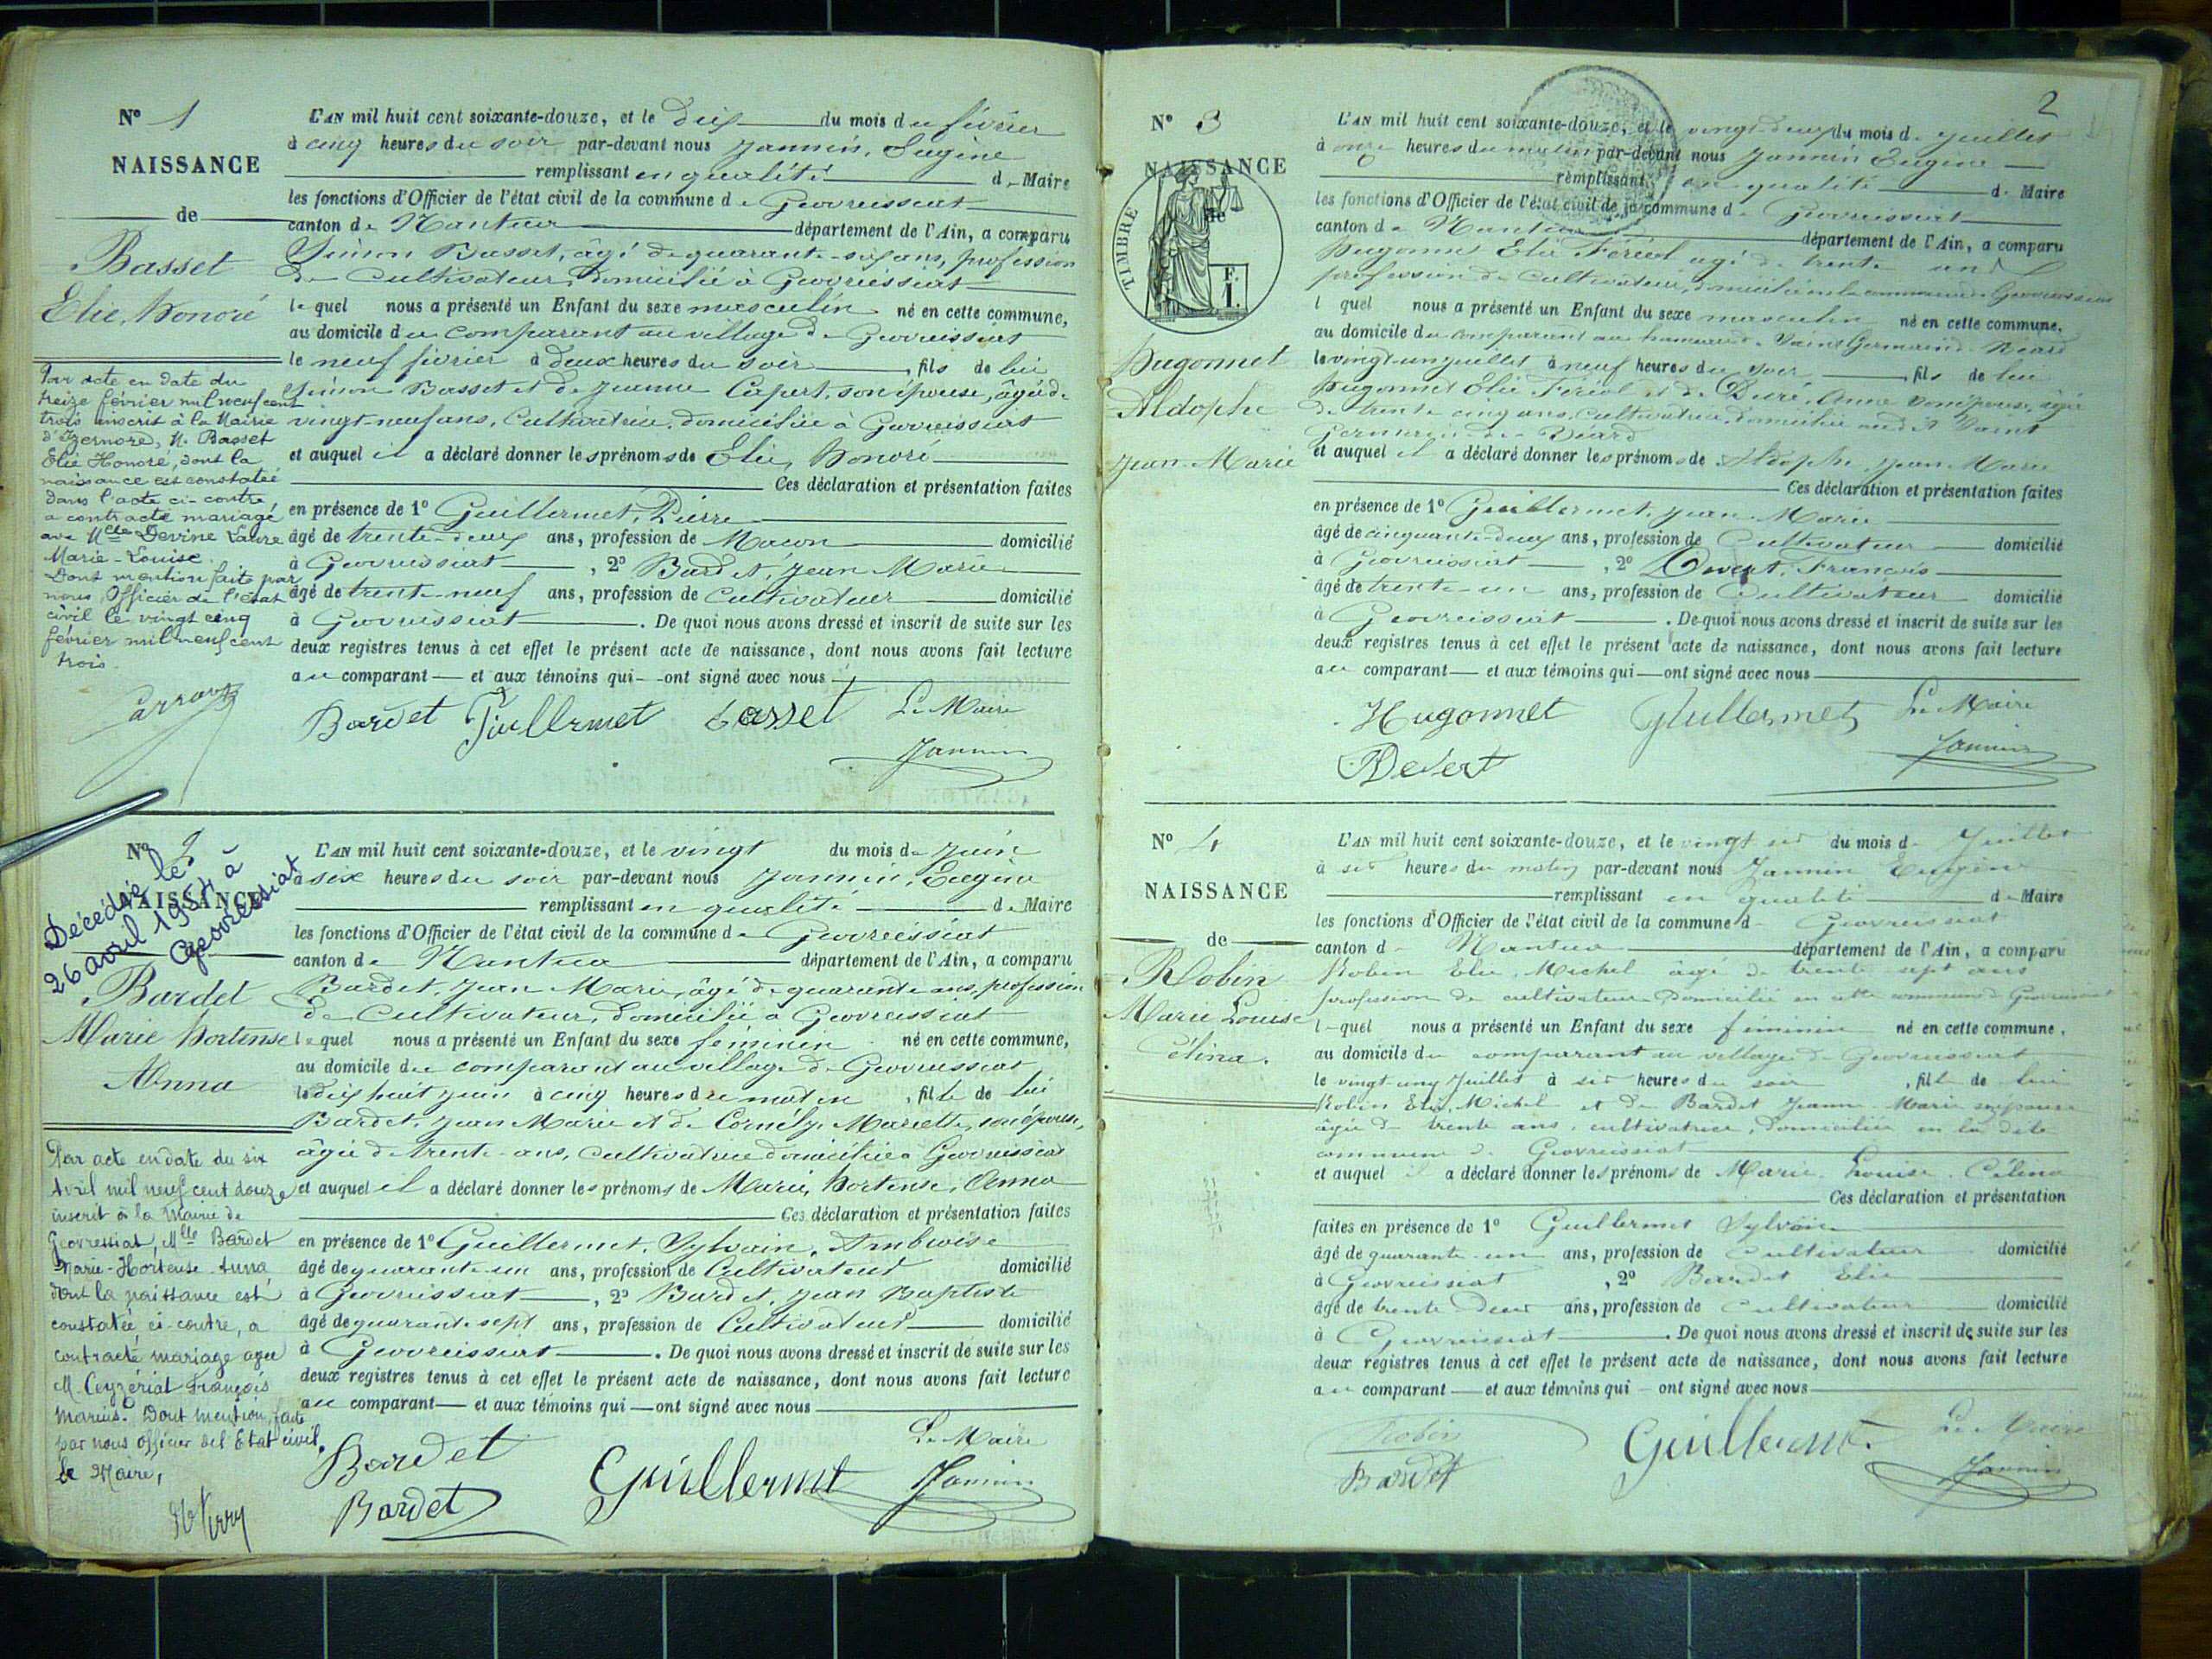 N° 1
NAISSANCE
de
Basset
Elie, Honoré
Par acte en date du
treize février mil neuf cent
trois inscrit à la Mairie
d'Izernore, M. Basset
Elie Honoré, dont la
naissance est constatée
dans l'acte ci-contre
a contracté mariage
avec Mlle Devine Laure
Marie-Louise.
Dont mention faite par
nous, Officier de l'état
civil le vingt cinq
février mil neuf cent
trois.
L'AN mil huit cent soixante-douze, et le dix du mois de février
à cinq heures du soir par-devant nous Jannin, Eugène
remplissant en qualité de Maire
les fonctions d'Officier de l'état civil de la commune de Géovreissiat
canton de Nantua département de l'Ain, a comparu
Simon Basset, âgé de quarante-six ans, profession
de Cultivateur, domicilié à Géovreissiat
lequel nous a présenté un Enfant du sexe masculin né en cette commune,
au domicile du comparant au village de Géovreissiat
le neuf février à deux heures du soir, fils de lui
Simon Basset et de Jeanne Capert, son épouse, âgée de
vingt-neuf ans, Cultivatrice, domiciliée à Géovreissiat
et auquel il a déclaré donner les prénoms de Elie, Honoré
Ces déclaration et présentation faites
en présence de 1° Guillermet, Pierre
âgé de trente-deux ans, profession de Maçon domicilié
à Géovreissiat, 2° Bardet, Jean Marie
âgé de trente-neuf ans, profession de Cultivateur domicilié
à Géovreissiat. De quoi nous avons dressé et inscrit de suite sur les
deux registres tenus à cet effet le présent acte de naissance, dont nous avons fait lecture
au comparant et aux témoins qui ont signé avec nous
Bardet Guillermet Basset Le Maire
Jannin
N° 2
NAISSANCE
Décédée le
26 avril 1954 à
Géovreissiat
Bardet
Marie Hortense
Anna
Par acte en date du six
Avril mil neuf cent douze
inscrit à la Mairie de
Géovressiat, Mlle Bardet
Marie-Hortense-Anna
dont la naissance est
constatée ci-contre, a
contracté mariage avec
M. Ceyzériat François
Marius. Dont mention faite
par nous officier de l'Etat civil.
Le Maire,
L'AN mil huit cent soixante-douze, et le vingt du mois de Juin
à six heures du soir par-devant nous Jannin, Eugène
remplissant en qualité de Maire
les fonctions d'Officier de l'état civil de la commune de Géovreissiat
canton de Nantua département de l'Ain, a comparu
Bardet, Jean Marie, âgé de quarante ans, profession
de Cultivateur, domicilié à Géovreissiat
lequel nous a présenté un Enfant du sexe féminin né en cette commune,
au domicile du comparant au village de Géovreissiat
le dix huit juin à cinq heures du matin, fille de lui
Bardet, Jean Marie et de Cornély, Mariette, son épouse,
âgée de trente-ans, Cultivatrice domiciliée à Géovreissiat
et auquel il a déclaré donner les prénoms de Marie, Hortense, Anna
Ces déclaration et présentation faites
en présence de 1° Guillermet, Sylvain, Ambroise
âgé de quarante-un ans, profession de Cultivateur domicilié
à Géovreissiat, 2° Bardet, Jean Baptiste
âgé de quarante sept ans, profession de Cultivateur domicilié
à Géovreissiat. De quoi nous avons dressé et inscrit de suite sur les
deux registres tenus à cet effet le présent acte de naissance, dont nous avons fait lecture
au comparant et aux témoins qui ont signé avec nous
Le Maire
Bardet Guillermet Jannin
Bardet
2
N° 3
NAISSANCE
de
TIMBRE
F.
I.
Hugonnet
Aldophe
Jean-Marie
L'AN mil huit cent soixante-douze, et le vingt-deux du mois de Juillet
à onze heures du matin par-devant nous Jannin Eugène
remplissant en qualité de Maire
les fonctions d'Officier de l'état civil de la commune de Géovreissiat
canton de Nantua département de l'Ain, a comparu
Hugonnet Elie Féréol agé de trente ans
profession de Cultivateur, domicilié en la commune de Géovreissiat
l quel nous a présenté un Enfant du sexe masculin né en cette commune.
au domicile du comparant au hameau de Saint Germain de Béard
le vingt-un juillet à neuf heures du soir, fils de lui
Hugonnet Elie Féréol et de Duré, Anne son épouse, agée
de trente cinq ans, Cultivatrice, domiciliée au dit Saint
Germain de Béard
et auquel il a déclaré donner les prénoms de Aldophe, Jean Marie
Ces déclaration et présentation faites
en présence de 1° Guillermet, Jean Marie
âgé de cinquante-deux ans, profession de Cultivateur domicilié
à Géovreissiat, 2° Devert, François
âgé de trente-un ans, profession de Cultivateur domicilié
à Géovreissiat. De quoi nous avons dressé et inscrit de suite sur les
deux registres tenus à cet effet le présent acte de naissance, dont nous avons fait lecture
au comparant et aux témoins qui ont signé avec nous
Hugonnet Guillermet Le Maire
Devert Jannin
N° 4
NAISSANCE
de
Robin
Marie Louise
Célina.
L'AN mil huit cent soixante-douze, et le vingt six du mois de Juillet
à six heures du matin par-devant nous Jannin Eugène
remplissant en qualité de Maire
les fonctions d'Officier de l'état civil de la commune de Géovreissiat
canton de Nantua département de l'Ain, a comparu
Robin Elie, Michel âgé de trente sept ans
profession de cultivateur domicilié en cette commune de Géovreissiat
lequel nous a présenté un Enfant du sexe féminin né en cette commune,
au domicile du comparant au village de Géovreissiat
le vingt-cinq Juillet à six heures du soir, fille de lui
Robin Elie, Michel et de Bardet Jeanne Marie son épouse
âgée de trente ans, cultivatrice, domiciliée en la dite
commune de Géovreissiat
et auquel il a déclaré donner les prénoms de Marie Louise Célina
Ces déclaration et présentation
faites en présence de 1° Guillermet Sylvain
âgé de quarante-un ans, profession de Cultivateur domicilié
à Géovreissiat, 2° Bardet Elie
âgé de trente deux ans, profession de Cultivateur domicilié
à Géovreissiat. De quoi nous avons dressé et inscrit de suite sur les
deux registres tenus à cet effet le présent acte de naissance, dont nous avons fait lecture
au comparant et aux témoins qui ont signé avec nous
Robin Guillermet Le Maire
Bardet Jannin